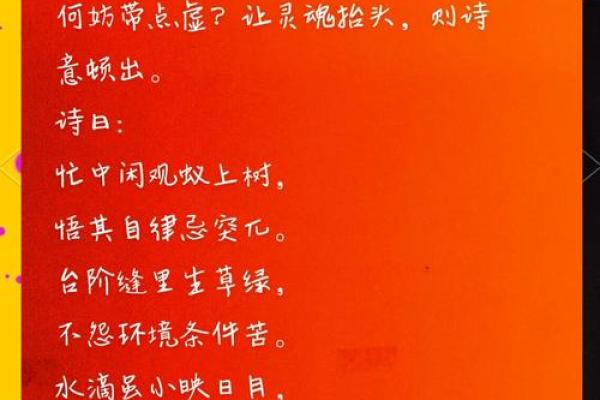 何妨带点虚？让灵魂抬头，则诗
意顿出。
诗曰：
忙中闲观蚁上树，
悟其自律忌突兀。
台阶缝里生草绿，
不怨环境条件苦。
水滴虽小映日月，